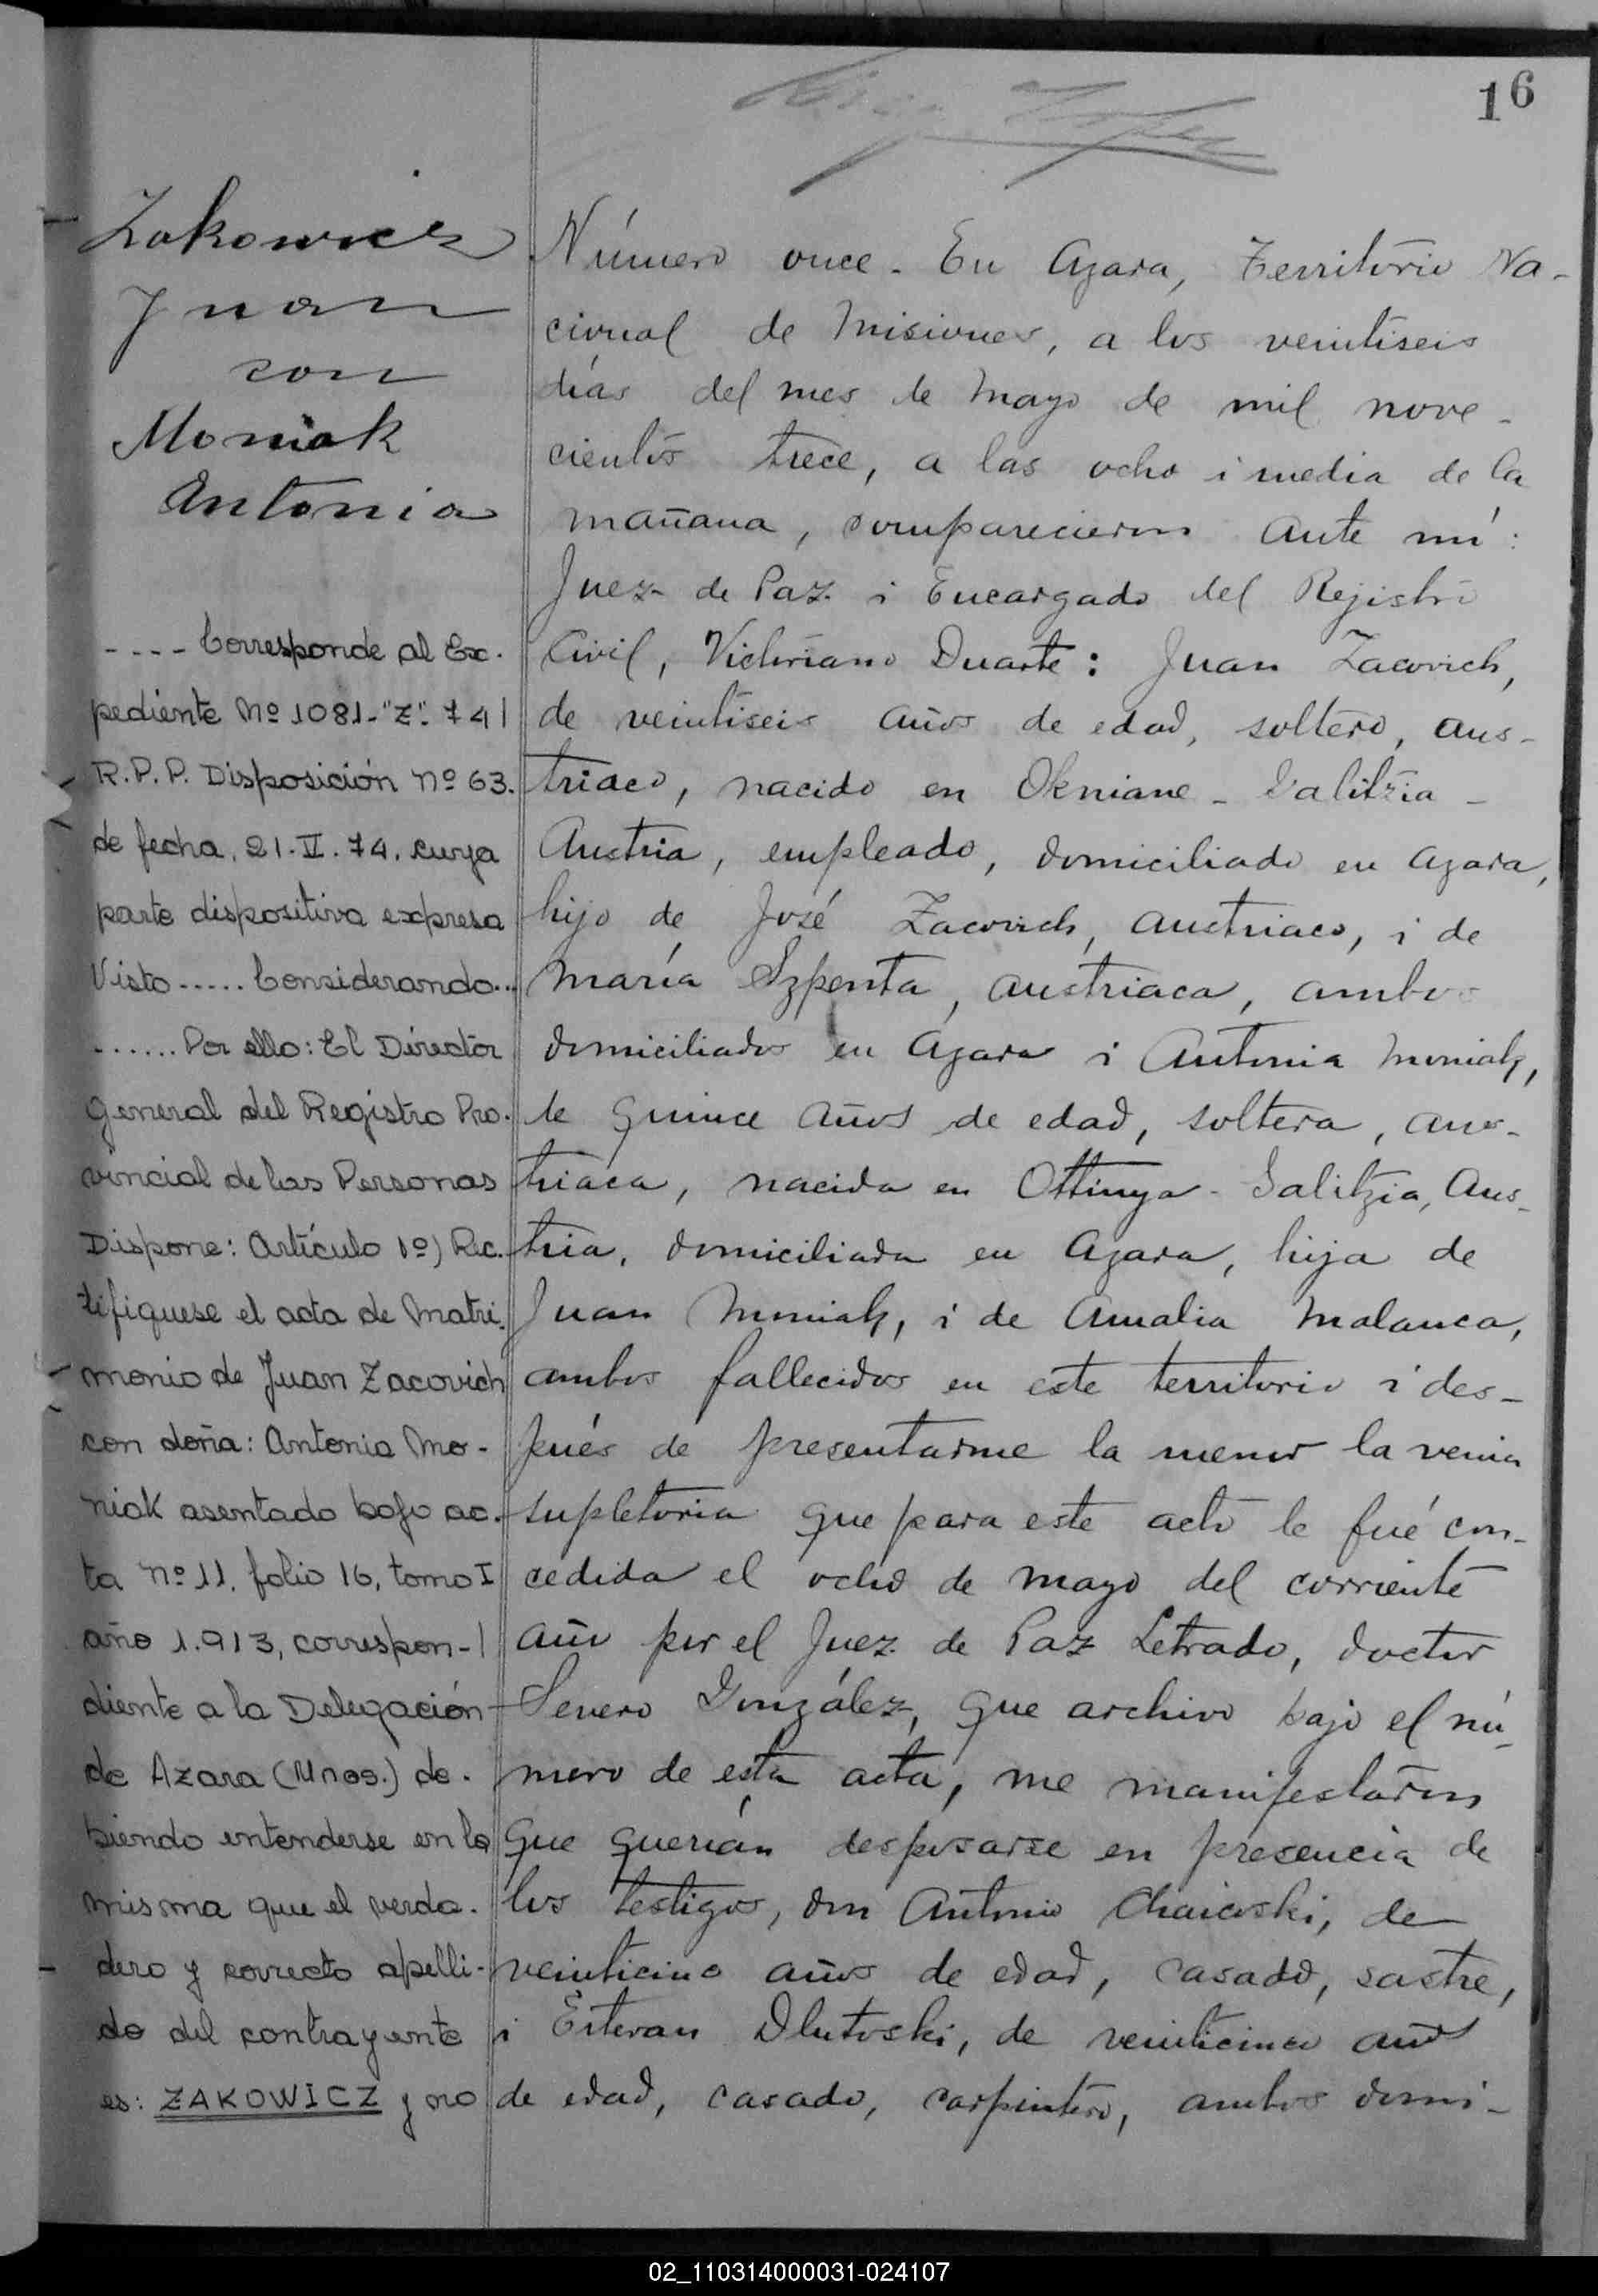 16
Zakowicz
Juan
con
Moniak
Antonia
---- Corresponde al Ex-
pediente Nº 1081-"Z"-74|
R.P.P. Disposición Nº 63.
de fecha, 21.II.74, cuya
parte dispositiva expresa
Visto ..... Considerando...
...... Por ello: El Director
General del Registro Pro-
vincial de las Personas
Dispone: Artículo 1º) Rec-
tifiquese el acta de Matri-
monio de Juan Zacovich
con doña: Antonia Mo-
niak asentado bajo ac-
ta Nº 11, folio 16, tomo I
año 1.913, correspon-|
diente a la Delegación
de Azara (Mnes.) de-
biendo entenderse en la
misma que el verda-
dero y correcto apelli-
do del contrayente
es: ZAKOWICZ y no
Número once - En Azara, Territorio Na-
cional de Misiones, a los veintiseis
días del mes de Mayo de mil nove-
cientos trece, a las ocho i media de la
mañana, comparecieron ante mí:
Juez de Paz i Encargado del Rejistro
Civil, Victoriano Duarte: Juan Zacovich,
de veintiseis años de edad, soltero, aus-
triaco, nacido en Okniane - Galitzia -
Austria, empleado, domiciliado en Azara,
hijo de José Zacovich, austriaco, i de
María Szpenta, austriaca, ambos
domiciliados en Azara i Antonia Moniak,
de quince años de edad, soltera, aus-
triaca, nacida en Ottinya - Galitzia, Aus-
tria, domiciliada en Azara, hija de
Juan Moniak, i de Amalia Malanca,
ambos fallecidos en este territorio i des-
pués de presentarme la menor la venia
supletoria que para este acto le fué con-
cedida el ocho de Mayo del corriente
año por el Juez de Paz Letrado, doctor
Severo González, que archivo bajo el nú-
mero de esta acta, me manifestaron
que querían desposarse en presencia de
los testigos, don Antonio Chaicoski, de
veinticinco años de edad, casado, sastre,
i Estevan Dlutoski, de veinticinco años
de edad, casado, carpintero, ambos domi-
02_110314000031-024107